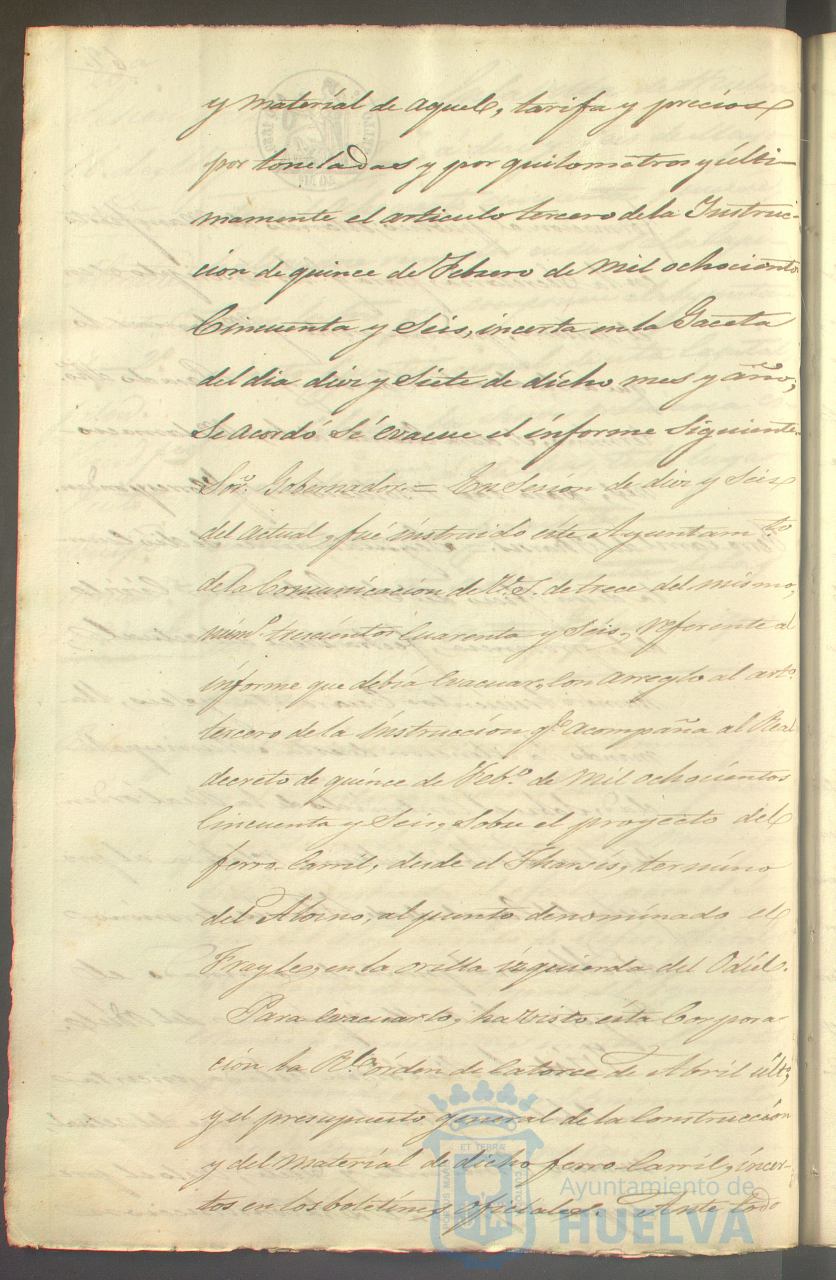 y material de aquel, tarifa y precios
por toneladas y por quilometros y últi-
mamente el articulo tercero de la Instruc-
cion de quince de Febrero de mil ochocientos
Cincuenta y Seis, incerta en la Gaceta
del dia diez y Siete de dicho mes y año;
Se acordó Sé evacue el informe Siguiente.
Sor. Gobernador. = En Sesion de diez y Seis
del actual, fué instruido este Ayuntamto
de la Comunicacion de V. S. de trece del mismo,
numo. trescientos Cuarenta y Seis, referente al
informe que debia evacuar, con arreglo al arto.
tercero de la instruccion qe. acompaña al Real
decreto de quince de Febo. de mil ochocientos
Cincuenta y Seis, sobre el proyecto del
ferro-Carril, desde el Tharsis, termino
del Alosno, al punto denominado el
Frayle, en la orilla izquierda del Odiel.
Para evacuarlo, ha visto esta Corpora
ción la Rl. órden de Catorce de Abril últo.
y el presupuesto general de la Construccion
y del material de dicho ferro-Carril, incer-
tos en los boletines oficiales. Ante todo
Ayuntamiento de
HUELVA